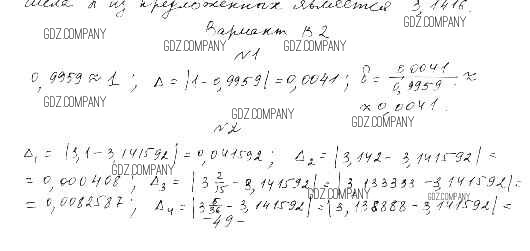 числа π из предложенных является 3,1416.
GDZ.COMPANY
Вариант В2
GDZ.COMPANY
GDZ.COMPANY GDZ.COMPANY
№1
0,9959 ≈ 1 ; Δ = |1 - 0,9959| = 0,0041 ; δ = 0,0041 / 0,9959 ≈
GDZ.COMPANY
≈ 0,0041.
GDZ.COMPANY GDZ.COMPANY
№2
Δ₁ = |3,1 - 3,141592| = 0,041592 ; Δ₂ = |3,142 - 3,141592| =
GDZ.COMPANY
= 0,000408 ; Δ₃ = |3 2/15 - 3,141592| = |3,133333 - 3,141592| =
GDZ.COMPANY GDZ.COMPANY
= 0,0082587 ; Δ₄ = |3 5/36 - 3,141592| = |3,138888 - 3,141592| =
- 49 -